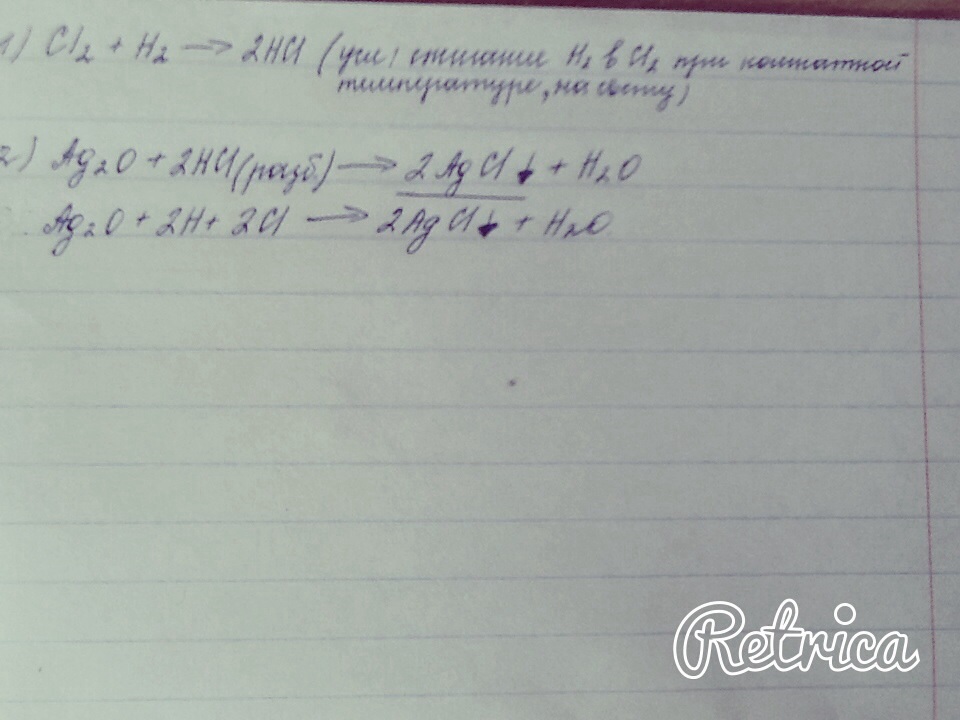 1) Cl2 + H2 → 2HCl (усл) сжигание H2 в Cl2 при комнатной
температуре, на свету)
2) Ag2O + 2HCl (разб) → 2AgCl↓ + H2O
Ag2O + 2H + 2Cl → 2AgCl↓ + H2O
Retrica